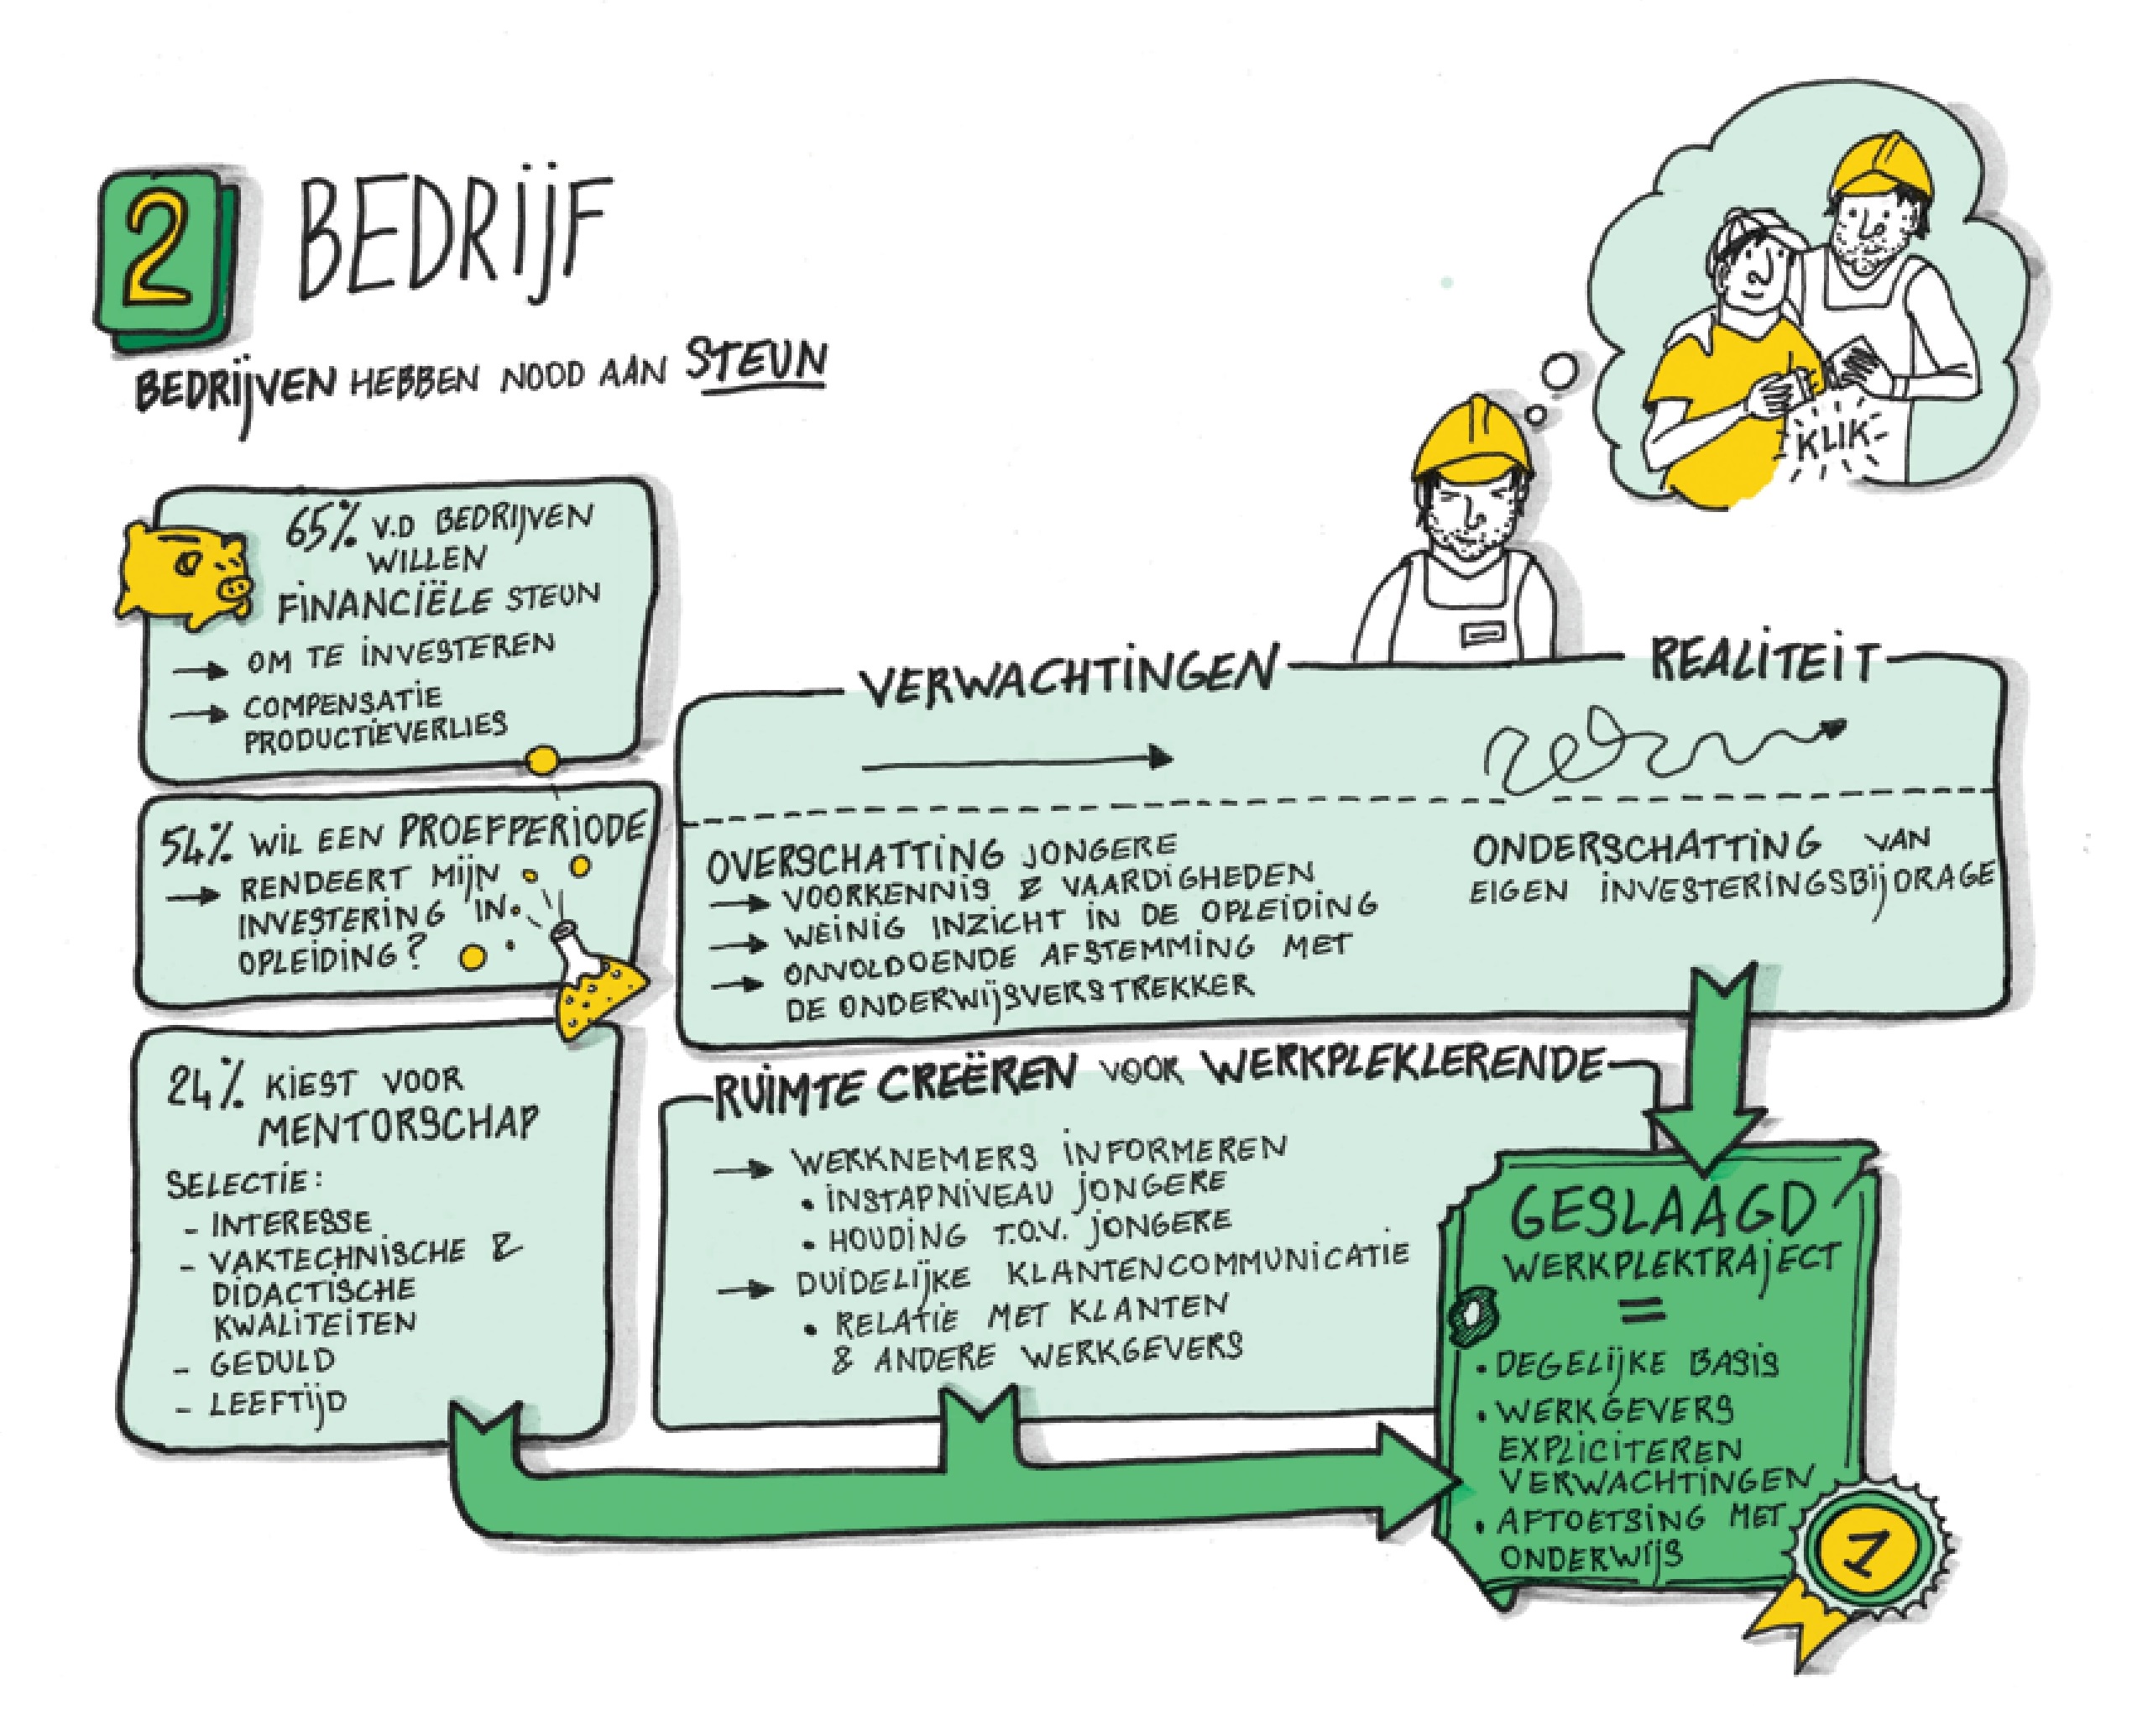 2
BEDRIJF
BEDRIJVEN HEBBEN NOOD AAN STEUN
KLIK
65% V.D BEDRIJVEN
WILLEN
FINANCIËLE STEUN
→ OM TE INVESTEREN
→ COMPENSATIE
PRODUCTIEVERLIES
54% WIL EEN PROEFPERIODE
→ RENDEERT MIJN
INVESTERING IN
OPLEIDING?
24% KIEST VOOR
MENTORSCHAP
SELECTIE:
- INTERESSE
- VAKTECHNISCHE &
DIDACTISCHE
KWALITEITEN
- GEDULD
- LEEFTIJD
VERWACHTINGEN
REALITEIT
OVERSCHATTING JONGERE
→ VOORKENNIS & VAARDIGHEDEN
→ WEINIG INZICHT IN DE OPLEIDING
→ ONVOLDOENDE AFSTEMMING MET
DE ONDERWIJSVERSTREKKER
ONDERSCHATTING VAN
EIGEN INVESTERINGSBIJDRAGE
RUIMTE CREËREN VOOR WERKPLEKLERENDE
→ WERKNEMERS INFORMEREN
• INSTAPNIVEAU JONGERE
• HOUDING T.O.V. JONGERE
→ DUIDELIJKE KLANTENCOMMUNICATIE
• RELATIE MET KLANTEN
& ANDERE WERKGEVERS
GESLAAGD
WERKPLEKTRAJECT
=
• DEGELIJKE BASIS
• WERKGEVERS
EXPLICITEREN
VERWACHTINGEN
• AFTOETSING MET
ONDERWIJS
1